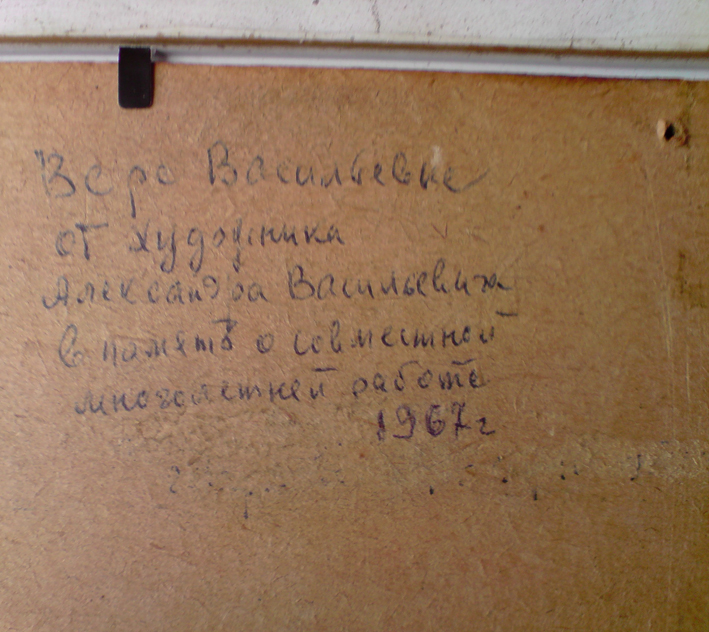 Вере Васильевне
от художника
Александра Васильевича
в память о совместной
многолетней работе
1967г